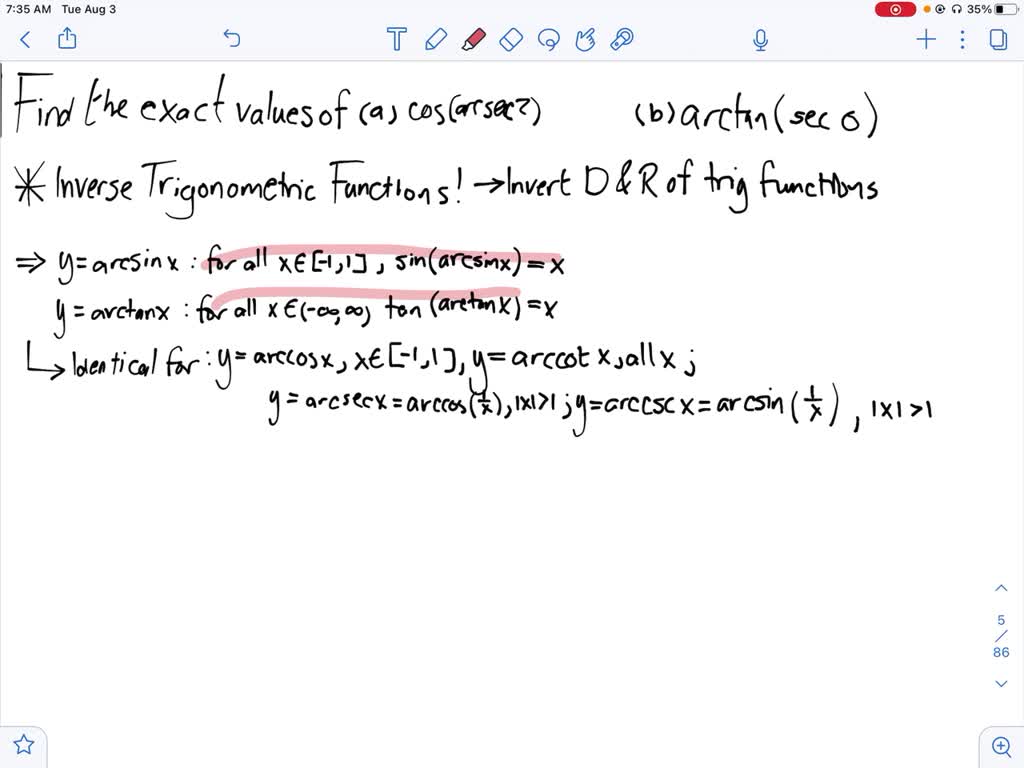 7:35 AM Tue Aug 3 35%
Find the exact values of (a) cos(arcsec2) (b) arctan(sec 0)
* Inverse Trigonometric Functions! → Invert D & R of trig functions
⇒ y = arcsinx : for all x∈[-1,1], sin(arcsinx) = x
y = arctanx : for all x∈(-∞,∞) tan(arctanx) = x
↳ Identical for : y = arccosx, x∈[-1,1], y = arccot x, all x ;
y = arcsecx = arccos(1/x), |x|>1 ; y = arccsc x = arcsin(1/x), |x|>1
5
/
86